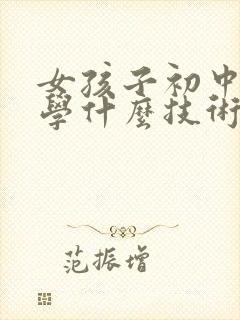 女孩子初中
學什麼技術
范振增